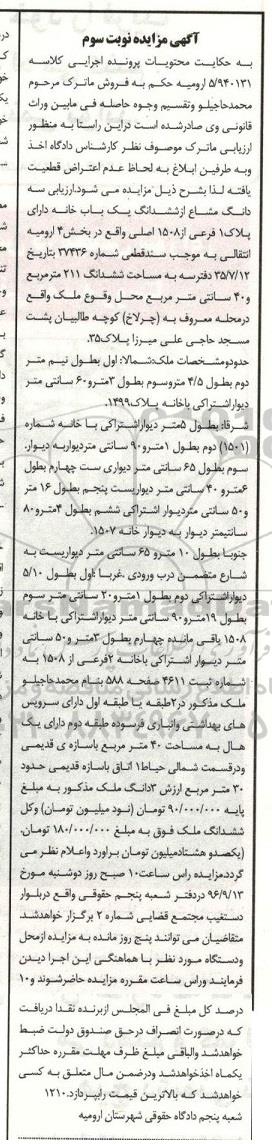 آگهی مزایده نوبت سوم
به حکایت محتویات پرونده اجرایی کلاسه
۵/۹۴۰۱۳۱ ارومیه حکم به فروش ماترک مرحوم
محمدحاجیلو وتقسیم وجوه حاصله فی مابین وراث
قانونی وی صادرشده است دراین راستا به منظور
ارزیابی ماترک موصوف نظر کارشناس دادگاه اخذ
وبه طرفین ابلاغ به لحاظ عدم اعتراض قطعیت
یافته لذا بشرح ذیل مزایده می شود.ارزیابی سه
دانگ مشاع ازششدانگ یک باب خانه دارای
پلاک۱ فرعی از۱۵۰۸ اصلی واقع در بخش۴ ارومیه
انتقالی به موجب سندقطعی شماره ۳۷۴۳۶ بتاریخ
۳۵/۷/۱۲ دفترسه به مساحت ششدانگ ۲۱۱ مترمربع
و۴۰ سانتی متر مربع محل وقوع ملک واقع
درمحله معروف به (چرلاخ) کوچه طالبیان پشت
مسجد حاجی علی میرزا پلاک۳۵.
حدودومشخصات ملک:شمالا: اول بطول نیم متر
دوم بطول ۴/۵ متروسوم بطول ۳مترو۶۰ سانتی متر
دیواراشتراکی باخانه پلاک۱۴۹۹.
شرقا: بطول ۵متر دیواراشتراکی با خانه شماره
(۱۵۰۱) دوم بطول ۱مترو۹۰ سانتی متردیواربه دیوار.
سوم بطول ۶۵ سانتی متر دیواری ست چهارم بطول
۶مترو ۴۰ سانتی متر دیواریست پنجم بطول ۱۶ متر
و۵۰ سانتی متردیوار اشتراکی ششم بطول ۴مترو۸۰
سانتیمتر دیوار به دیوار خانه ۱۵۰۷.
جنوبا بطول ۱۰ مترو ۶۵ سانتی متر دیواریست به
شارع متضمن درب ورودی .غربا :اول بطول ۵/۱۰
دیواراشتراکی دوم بطول ۱مترو۲۰ سانتی متر سوم
بطول ۱۹مترو۹۰ سانتی متر دیواراشتراکی با خانه
۱۵۰۸ باقی مانده چهارم بطول ۳متر و۵۰ سانتی
متر دیوار اشتراکی باخانه ۲فرعی از ۱۵۰۸ به
شماره ثبت ۴۶۱۱ صفحه ۵۸۸ بنام محمدحاجیلو
ملک مذکور در۲طبقه یا طبقه اول دارای سرویس
های بهداشتی وانباری فرسوده طبقه دوم دارای یک
هال به مساحت ۴۰ متر مربع باسازه ی قدیمی
ودرقسمت شمالی حیاط۱ اتاق باسازه قدیمی حدود
۳۰ متر مربع ارزش ۳دانگ ملک مذکور به مبلغ
پایه ۹۰/۰۰۰/۰۰۰ تومان (نود میلیون تومان) وکل
ششدانگ ملک فوق به مبلغ ۱۸۰/۰۰۰/۰۰۰ تومان.
(یکصدو هشتادمیلیون تومان براورد واعلام نظر می
گردد.مزایده راس ساعت۱۰ صبح روز دوشنبه مورخ
۹۶/۹/۱۳ دردفتر شعبه پنجم حقوقی واقع دربلوار
دستغیب مجتمع قضایی شماره ۲ برگزار خواهدشد.
متقاضیان می توانند پنج روز مانده به مزایده ازمحل
ودستگاه مورد نظر با هماهنگی این اجرا دیدن
فرمایند وراس ساعت مقرره مزایده حاضرشوند و۱۰
درصد کل مبلغ فی المجلس ازبرنده نقدا دریافت
که درصورت انصراف درحق صندوق دولت ضبط
خواهدشد والباقی مبلغ ظرف مهلت مقرره حداکثر
یکماه اخذخواهدشد ودرضمن مال متعلق به کسی
خواهدشد که بالاترین قیمت رابپردازد.۱۲۱۰
شعبه پنجم دادگاه حقوقی شهرستان ارومیه